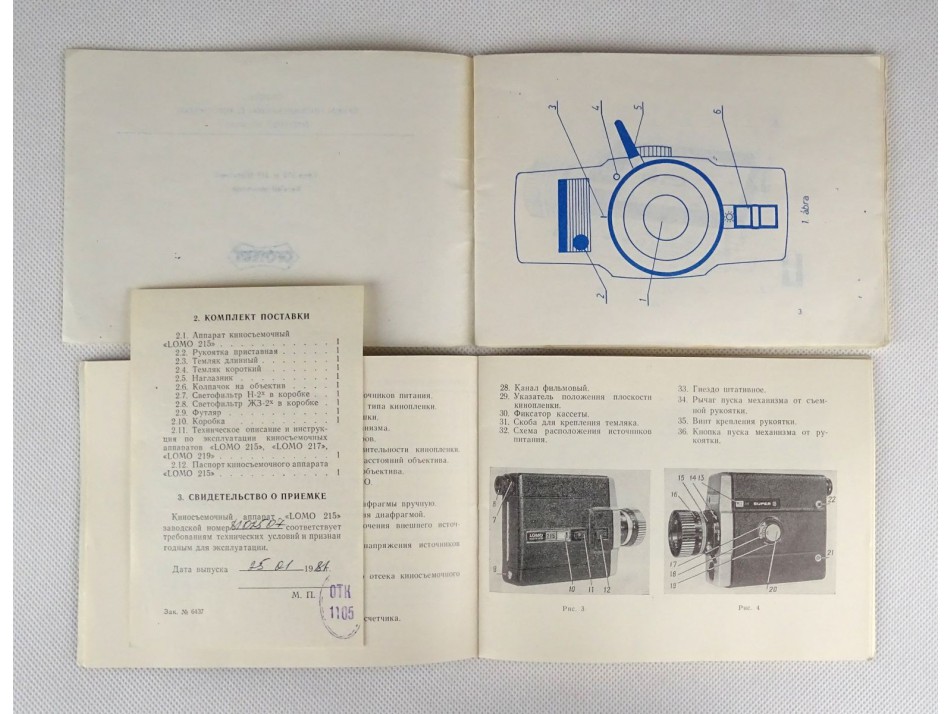 3
4
5
6
1. ábra
2
1
3
2. КОМПЛЕКТ ПОСТАВКИ
2.1. Аппарат киносъемочный
«LOMO 215» . . . . . . . . . . 1
2.2. Рукоятка приставная . . . . . . 1
2.3. Темляк длинный . . . . . . . 1
2.4. Темляк короткий . . . . . . . 1
2.5. Наглазник . . . . . . . . . 1
2.6. Колпачок на объектив . . . . . 1
2.7. Светофильтр Н-2х в коробке . . 1
2.8. Светофильтр ЖЗ-2х в коробке . 1
2.9. Футляр . . . . . . . . . . 1
2.10. Коробка . . . . . . . . . 1
2.11. Техническое описание и инструк-
ция по эксплуатации киносъемочных
аппаратов «LOMO 215», «LOMO 217»,
«LOMO 219» . . . . . . . . . . 1
2.12. Паспорт киносъемочного аппарата
«LOMO 215» . . . . . . . . . . 1
3. СВИДЕТЕЛЬСТВО О ПРИЕМКЕ
Киносъемочный аппарат «LOMO 215»
заводской номер соответствует
требованиям технических условий и признан
годным для эксплуатации.
Дата выпуска 25 01 1987
М. П.
ОТК
1105
Зак. № 6437
очников питания.
типа кинопленки.
ки.
низма.
ров.
ительности кинопленки.
асстояний объектива.
объектива.
О.
афрагмы вручную.
я диафрагмой.
очения внешнего источ-
напряжения источников
о отсека киносъемочного
счетчика.
28. Канал фильмовый.
29. Указатель положения плоскости
кинопленки.
30. Фиксатор кассеты.
31. Скоба для крепления темляка.
32. Схема расположения источников
питания.
33. Гнездо штативное.
34. Рычаг пуска механизма от съем-
ной рукоятки.
35. Винт крепления рукоятки.
36. Кнопка пуска механизма от ру-
коятки.
8
7
9
LOMO
215
10
11
12
Рис. 3
13
14
15
16
17
18
19
SUPER 8
20
21
22
Рис. 4